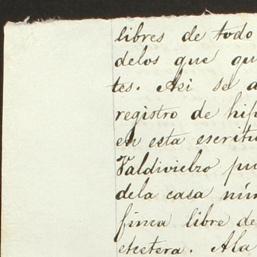 libres de todo
delos que qu
tes. Asi se a
registro de hip
en esta escritu
Valdivielzo pu
dela casa núm
finca libre de
etcetera. Ala